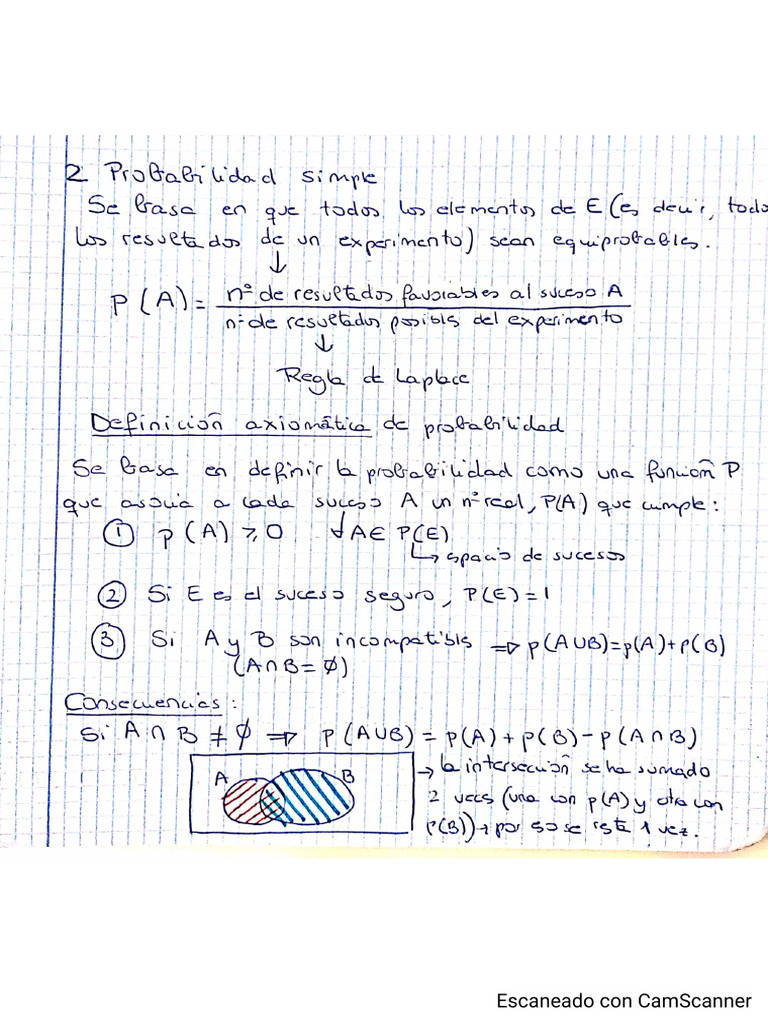 2 Probabilidad simple
Se basa en que todos los elementos de E (es decir, todo
los resultados de un experimento) sean equiprobables.
↓
P(A) = nº de resultados favorables al suceso A
nº de resultados posibles del experimento
↓
Regla de Laplace
Definición axiomática de probabilidad
Se basa en definir la probabilidad como una función P
que asocia a cada suceso A un nº real, P(A) que cumple:
① p(A) ≥ 0 ∀A∈ P(E)
↳ espacio de sucesos
② Si E es el suceso seguro, P(E)=1
③ Si A y B son incompatibles ⇒ p(A∪B)=p(A)+p(B)
(A∩B=∅)
Consecuencias:
Si A∩B ≠ ∅ ⇒ P(A∪B) = p(A)+p(B)-p(A∩B)
A B
→ la intersección se ha sumado
2 veces (una con p(A) y otra con
P(B)) → por eso se resta 1 vez.
Escaneado con CamScanner